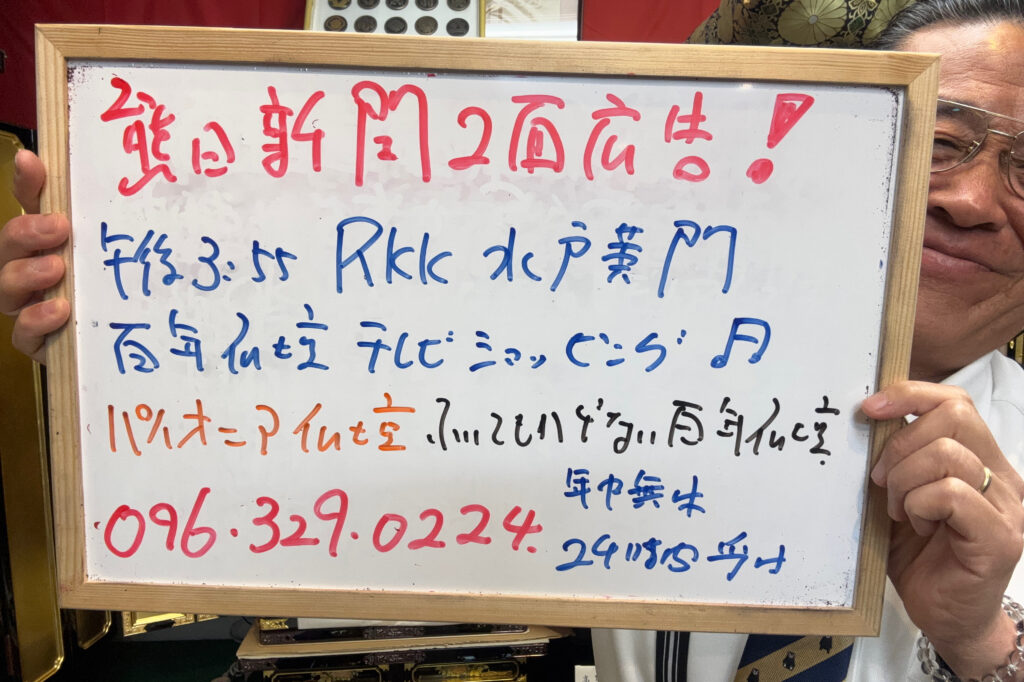 熊日新聞2面広告!
午後3:55 RKK 水戸黄門
百年仏壇 テレビショッピング ♫
パイオニア仏壇 ふいてもハゲない百年仏壇
096.329.0224.
年中無休
24時間受付